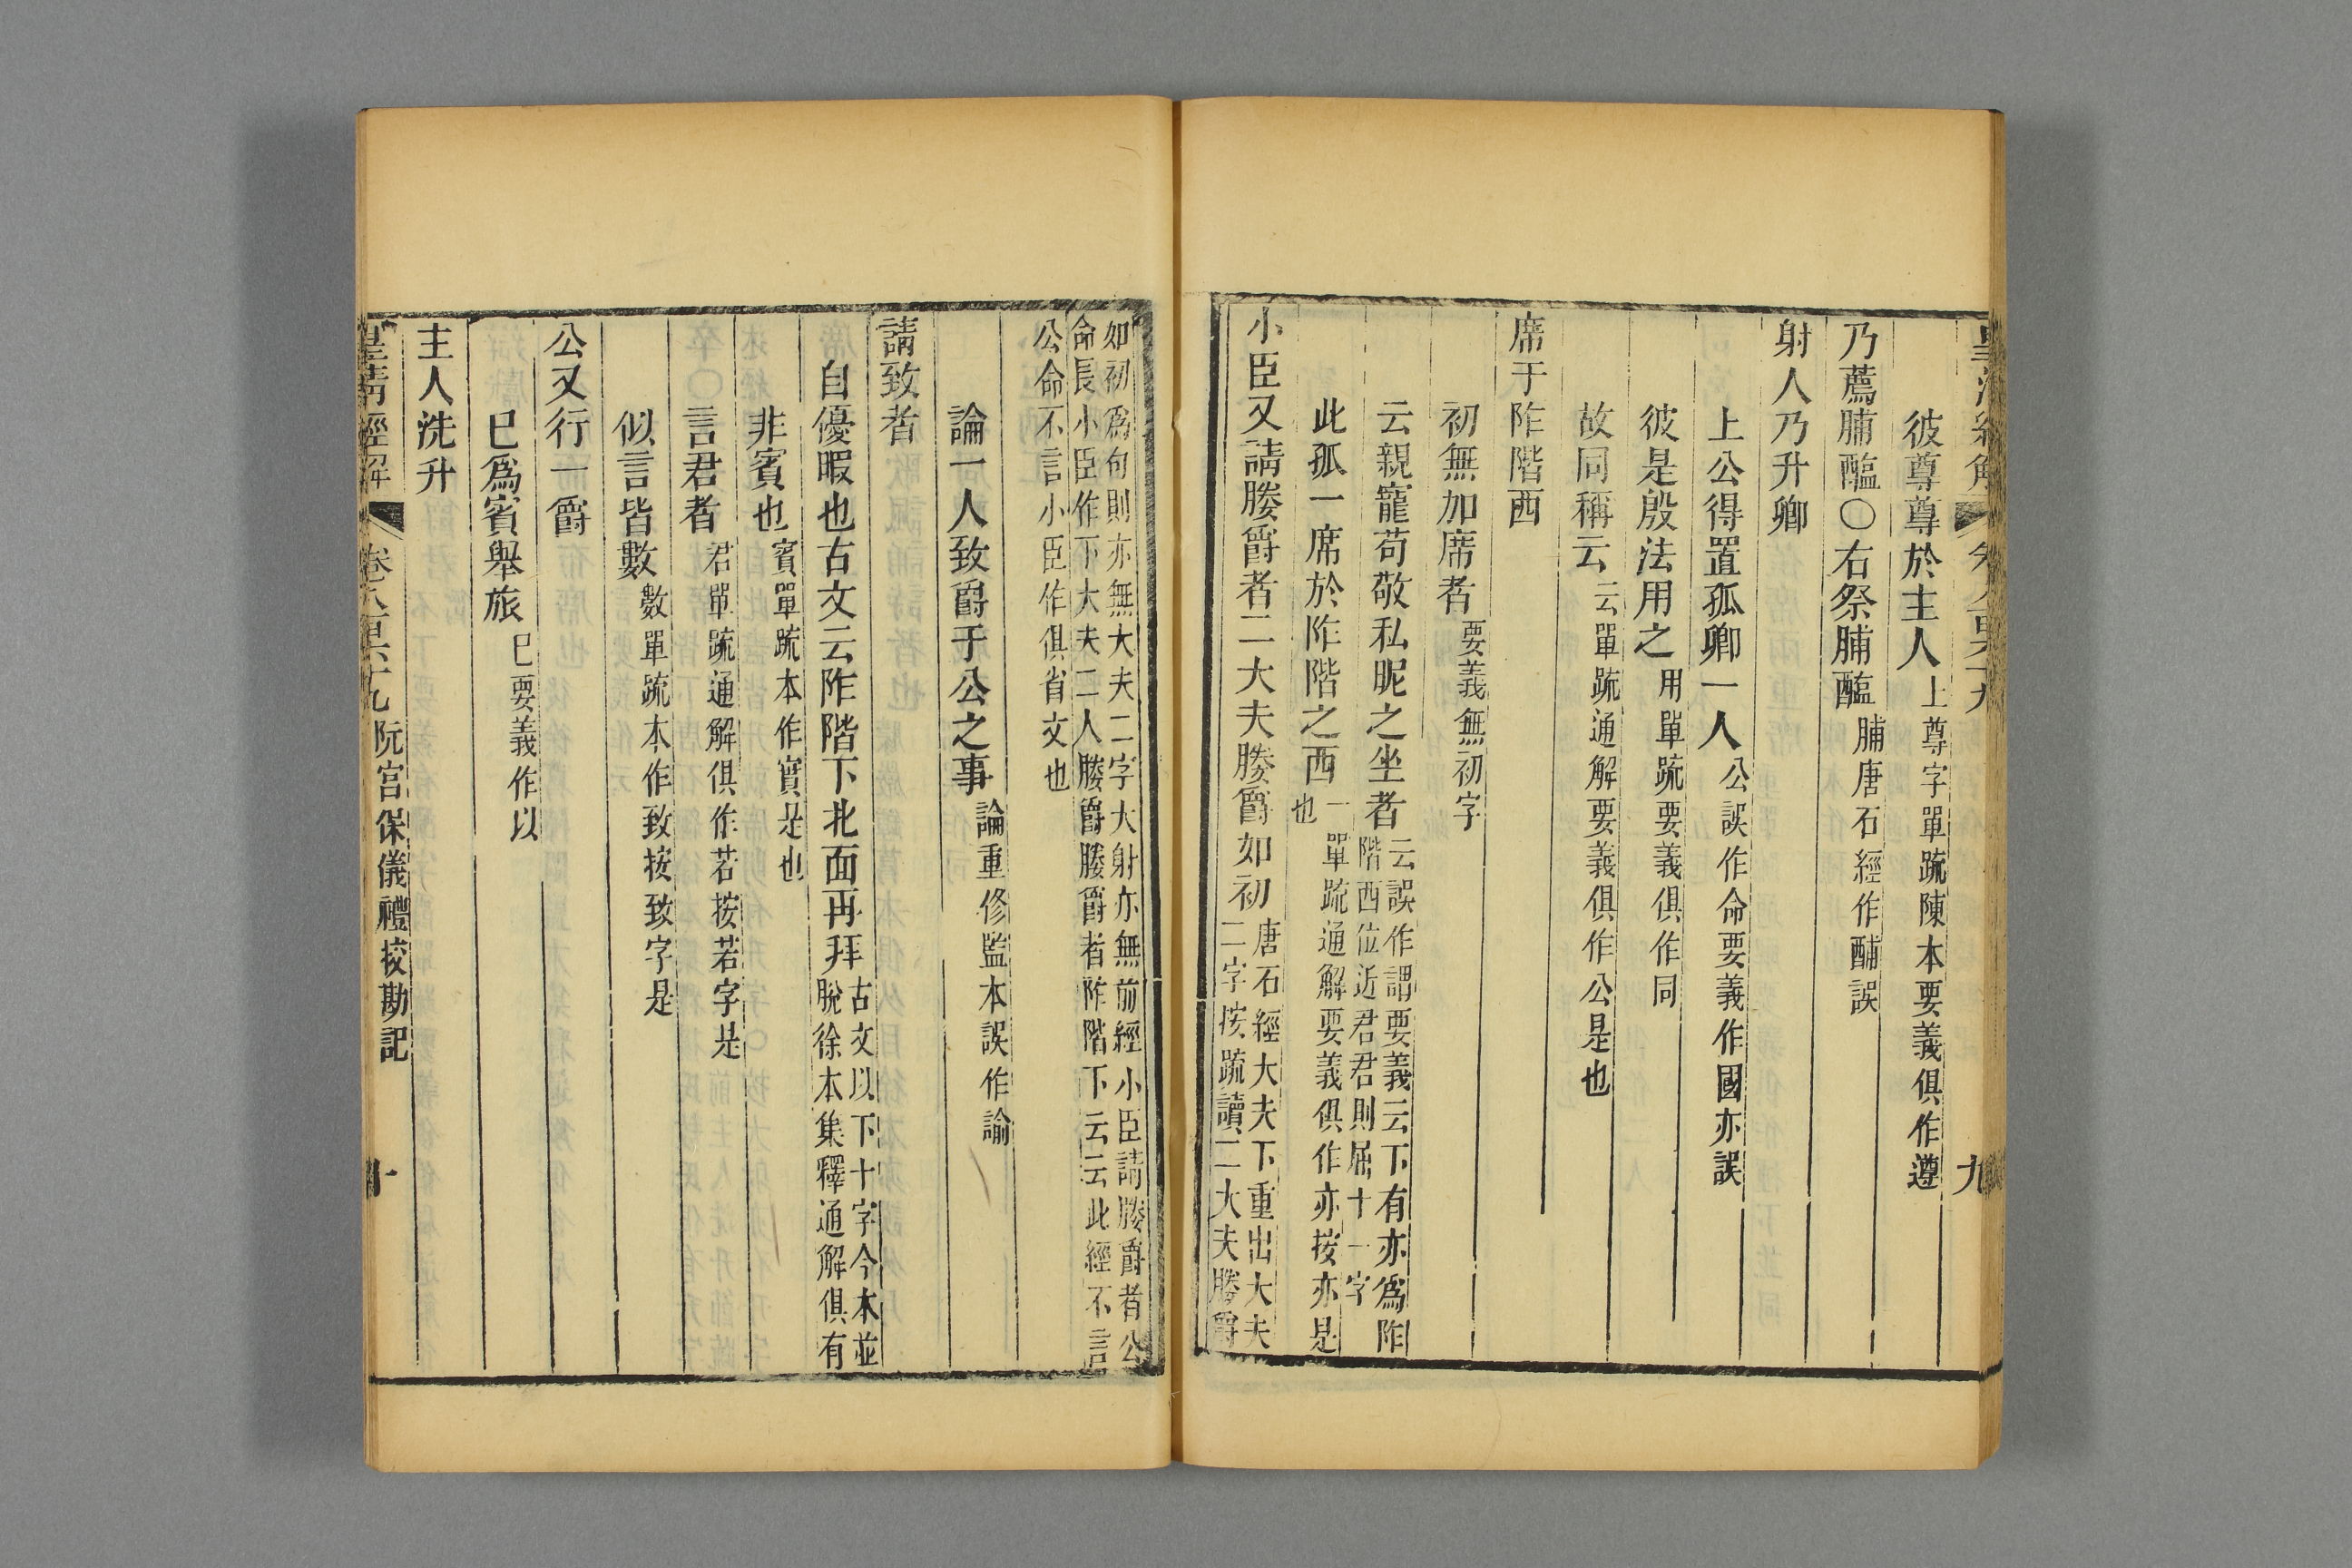 彼尊尊於主人上尊字單䟽陳本要義俱作遵
乃薦脯醢〇右祭脯醢脯唐石經作酺誤
射人乃升卿
上公得置孤卿一人公誤作命要義作國亦誤
彼是殷法用之用單䟽要義俱作同
故同稱云云單䟽通解要義俱作公是也
席于阼階西
初無加席者要義無初字
云親寵苟敬私昵之坐者云誤作謂要義云下有亦爲阼
階西位近君君則屈十一字
此孤一席於阼階之西一單䟽通解要義俱作亦按亦是
也
小臣又請媵爵者二大夫媵爵如初唐石經大夫下重出大夫
二字按䟽讀二大夫媵爵
九
如初爲句則亦無大夫二字大射亦無前經小臣請媵爵者公
命長小臣作下大夫二人媵爵媵爵者阼階下云云此經不言
公命不言小臣作俱省文也
論一人致爵于公之事論重修監本誤作諭
請致者
自優暇也古文云阼階下北面再拜古文以下十字今本並
脫徐本集釋通解俱有
非賓也賓單䟽本作實是也
言君者君單䟽通解俱作若按若字是
似言皆數數單䟽本作致按致字是
公又行一爵
巳爲賓舉旅巳要義作以
主人洗升
皇清經解
卷八百六十九
阮宮保儀禮挍勘記
十